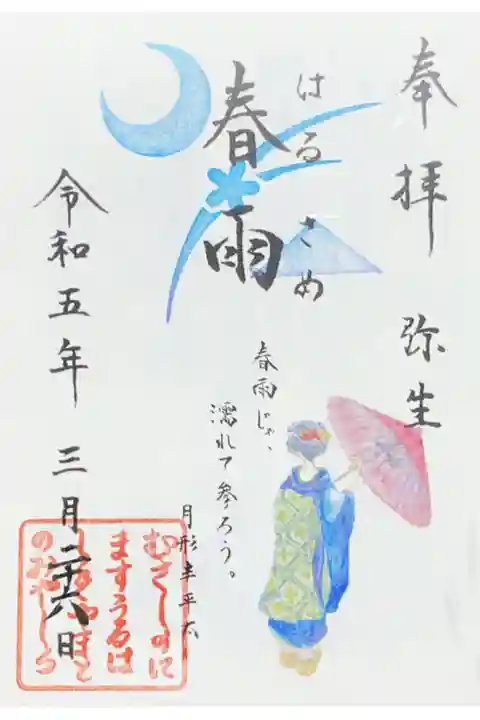 奉拝 弥生
はるさめ
春雨
春雨じゃ、
濡れて参ろう。
月形半平太
令和五年 三月二十八日
むさしのに
ますうるは
のみやしろ